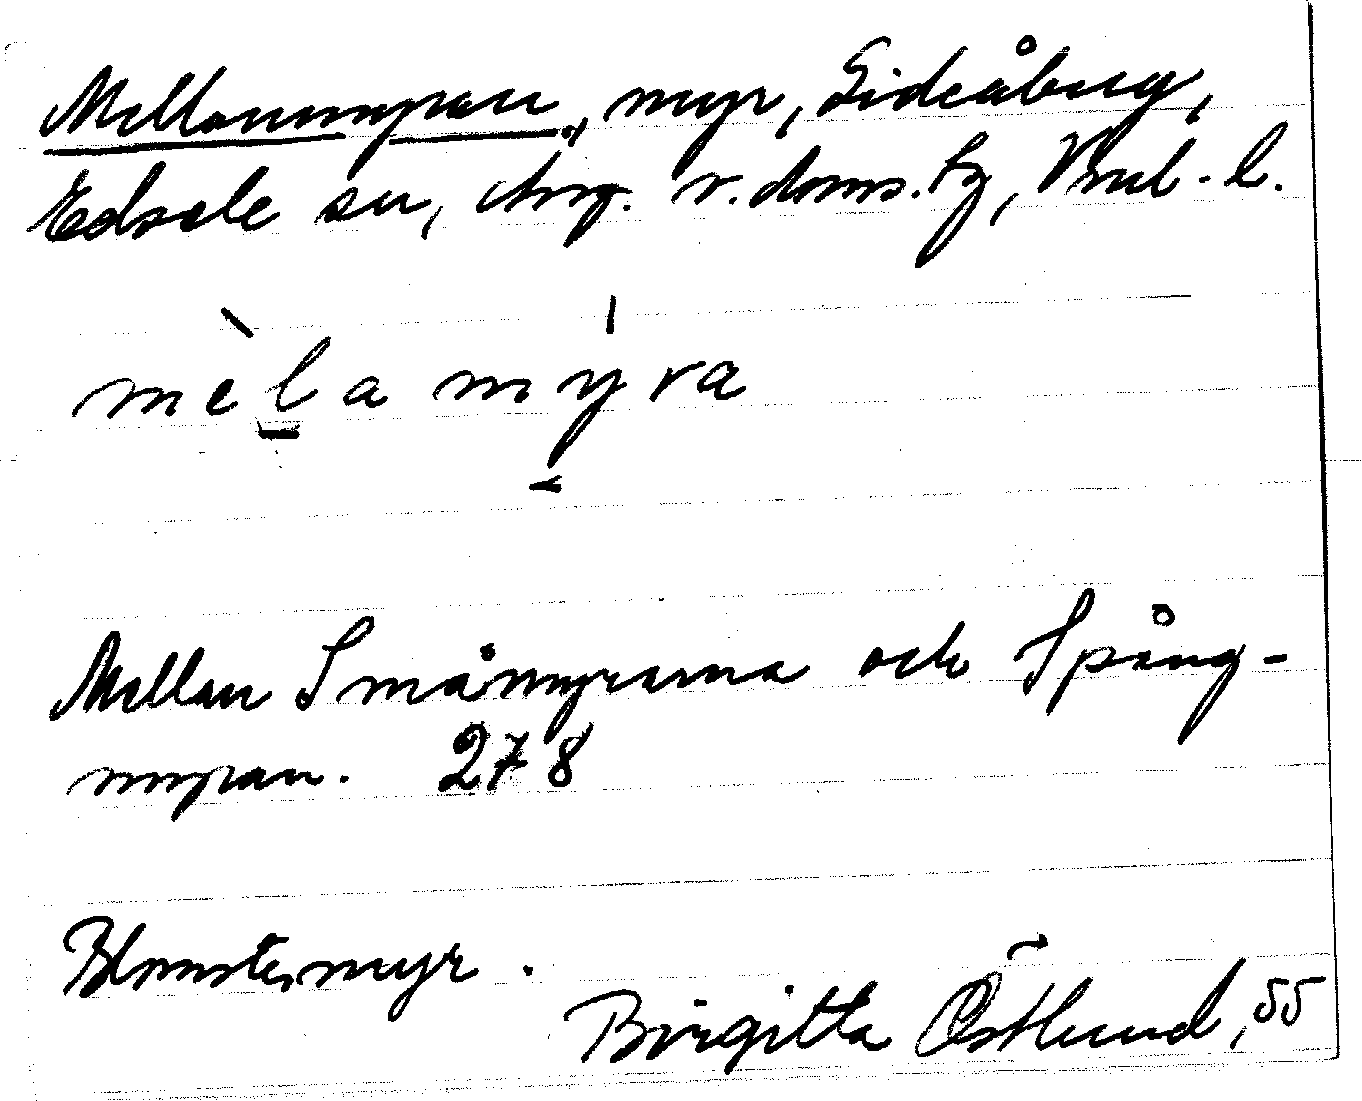 Mellanmyran, myr, Lideåberg,
Edsele sn, Ång. v. doms. tg, Vnl. l.
mèlamýra
Mellan Småmyrarna och Spång-
myran. 278
Blomstermyr.
Birgitta Östlund, 55